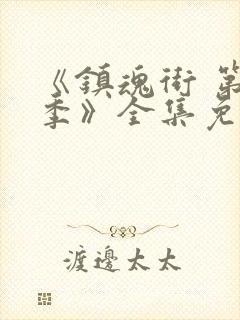 《鎮魂街 第
季》全集免
渡邊太太